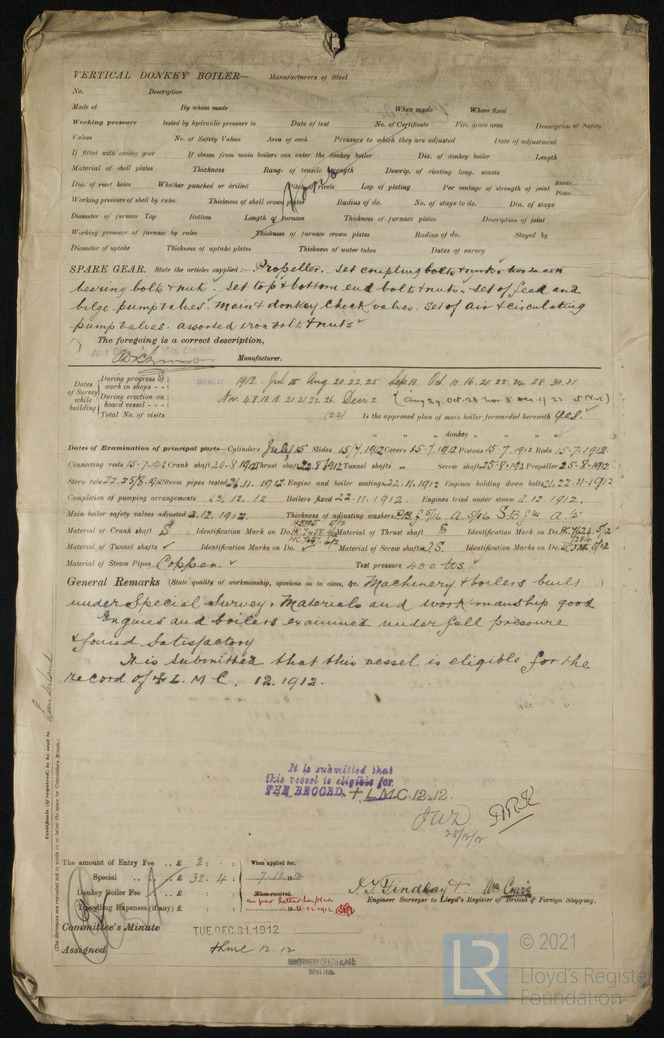 VERTICAL DONKEY BOILER— Manufacturers of Steel
No. Description
Made at By whom made When made Where fixed
Working pressure tested by hydraulic pressure to Date of test No. of Certificate Fire grate area Description of Safety
Valves No. of Safety Valves Area of each Pressure to which they are adjusted Date of adjustment
If fitted with easing gear If steam from main boilers can enter the donkey boiler Dia. of donkey boiler Length
Material of shell plates Thickness Range of tensile strength Descrip. of riveting long. seams
Dia. of rivet holes Whether punched or drilled Pitch of rivets Lap of plating Per centage of strength of joint Rivets Plates
Working pressure of shell by rules Thickness of shell crown plates Radius of do. No. of stays to do. Dia. of stays
Diameter of furnace Top Bottom Length of furnace Thickness of furnace plates Description of joint
Working pressure of furnace by rules Thickness of furnace crown plates Radius of do. Stayed by
Diameter of uptake Thickness of uptake plates Thickness of water tubes Dates of survey
SPARE GEAR. State the articles supplied:— Propeller. Set coupling bolts & nuts.
bearing bolts & nuts. Set top & bottom end bolts & nuts. Set of feed and
bilge pump valves. Main & donkey check valves. Set of air & circulating
pump valves. Assorted iron bolts & nuts
The foregoing is a correct description,
Manufacturer.
Dates of Survey while building
During progress of work in shops - - 1912. Jul 15 Aug. 20 22 25 Sep 13 Oct. 10. 16. 21. 22. 24. 28. 30. 31
During erection on board vessel - - - Nov. 4. 8. 12. 18. 21. 22. 26. Dec 2
Total No. of visits (22) Is the approved plan of main boiler forwarded herewith yes.
" " " donkey " " "
Dates of Examination of principal parts—Cylinders July 15 Slides 15/7/1912 Covers 15-7-1912 Pistons 15-7-1912 Rods 15-7-1912
Connecting rods 15-7-1912 Crank shaft 20-8-1912 Thrust shaft 22.8.1912 Tunnel shafts " Screw shaft 25-8-1912 Propeller 25-8-1912
Stern tube 22.25/8/1912 Steam pipes tested 26.11.1912 Engine and boiler seatings 22.11.1912 Engines holding down bolts 21.22.11.1912
Completion of pumping arrangements 12.12 Boilers fixed 22.11.1912. Engines tried under steam 2.12.1912.
Main boiler safety valves adjusted 2.12.1912. Thickness of adjusting washers
Material of Crank shaft S Identification Mark on Do. Material of Thrust shaft S Identification Mark on Do.
Material of Tunnel shafts Identification Marks on Do. Material of Screw shafts S. Identification Marks on Do.
Material of Steam Pipes Copper. Test pressure 400 lbs
General Remarks (State quality of workmanship, opinions as to class, &c. Machinery & boilers built
under Special Survey. Materials and workmanship good
Engines and boilers examined under full pressure
& found satisfactory
It is submitted that this vessel is eligible for the
record of + L. M C. 12.1912.
It is submitted that
this vessel is eligible for
THE RECORD. + LMC 12.12.
JWD
28/12/12
ARK
Certificate (if required) to be sent to Sunderland
(The Surveyors are requested not to write on or below the space for Committee's Minute.)
The amount of Entry Fee .. £ 2 : : When applied for,
Special .. .. £ 32. 4 : 7.12.1912
Donkey Boiler Fee .. .. £ : : When received,
Travelling Expenses (if any) £ : : 11.12.1912
J. T. Findlay & Wm Craig
Engineer Surveyor to Lloyd's Register of British & Foreign Shipping.
Committee's Minute TUE. DEC. 31. 1912
Assigned + LMC 12.12
MACHINERY CERTIFICATE
WRITTEN.
LR
© 2021
Lloyd's Register
Foundation